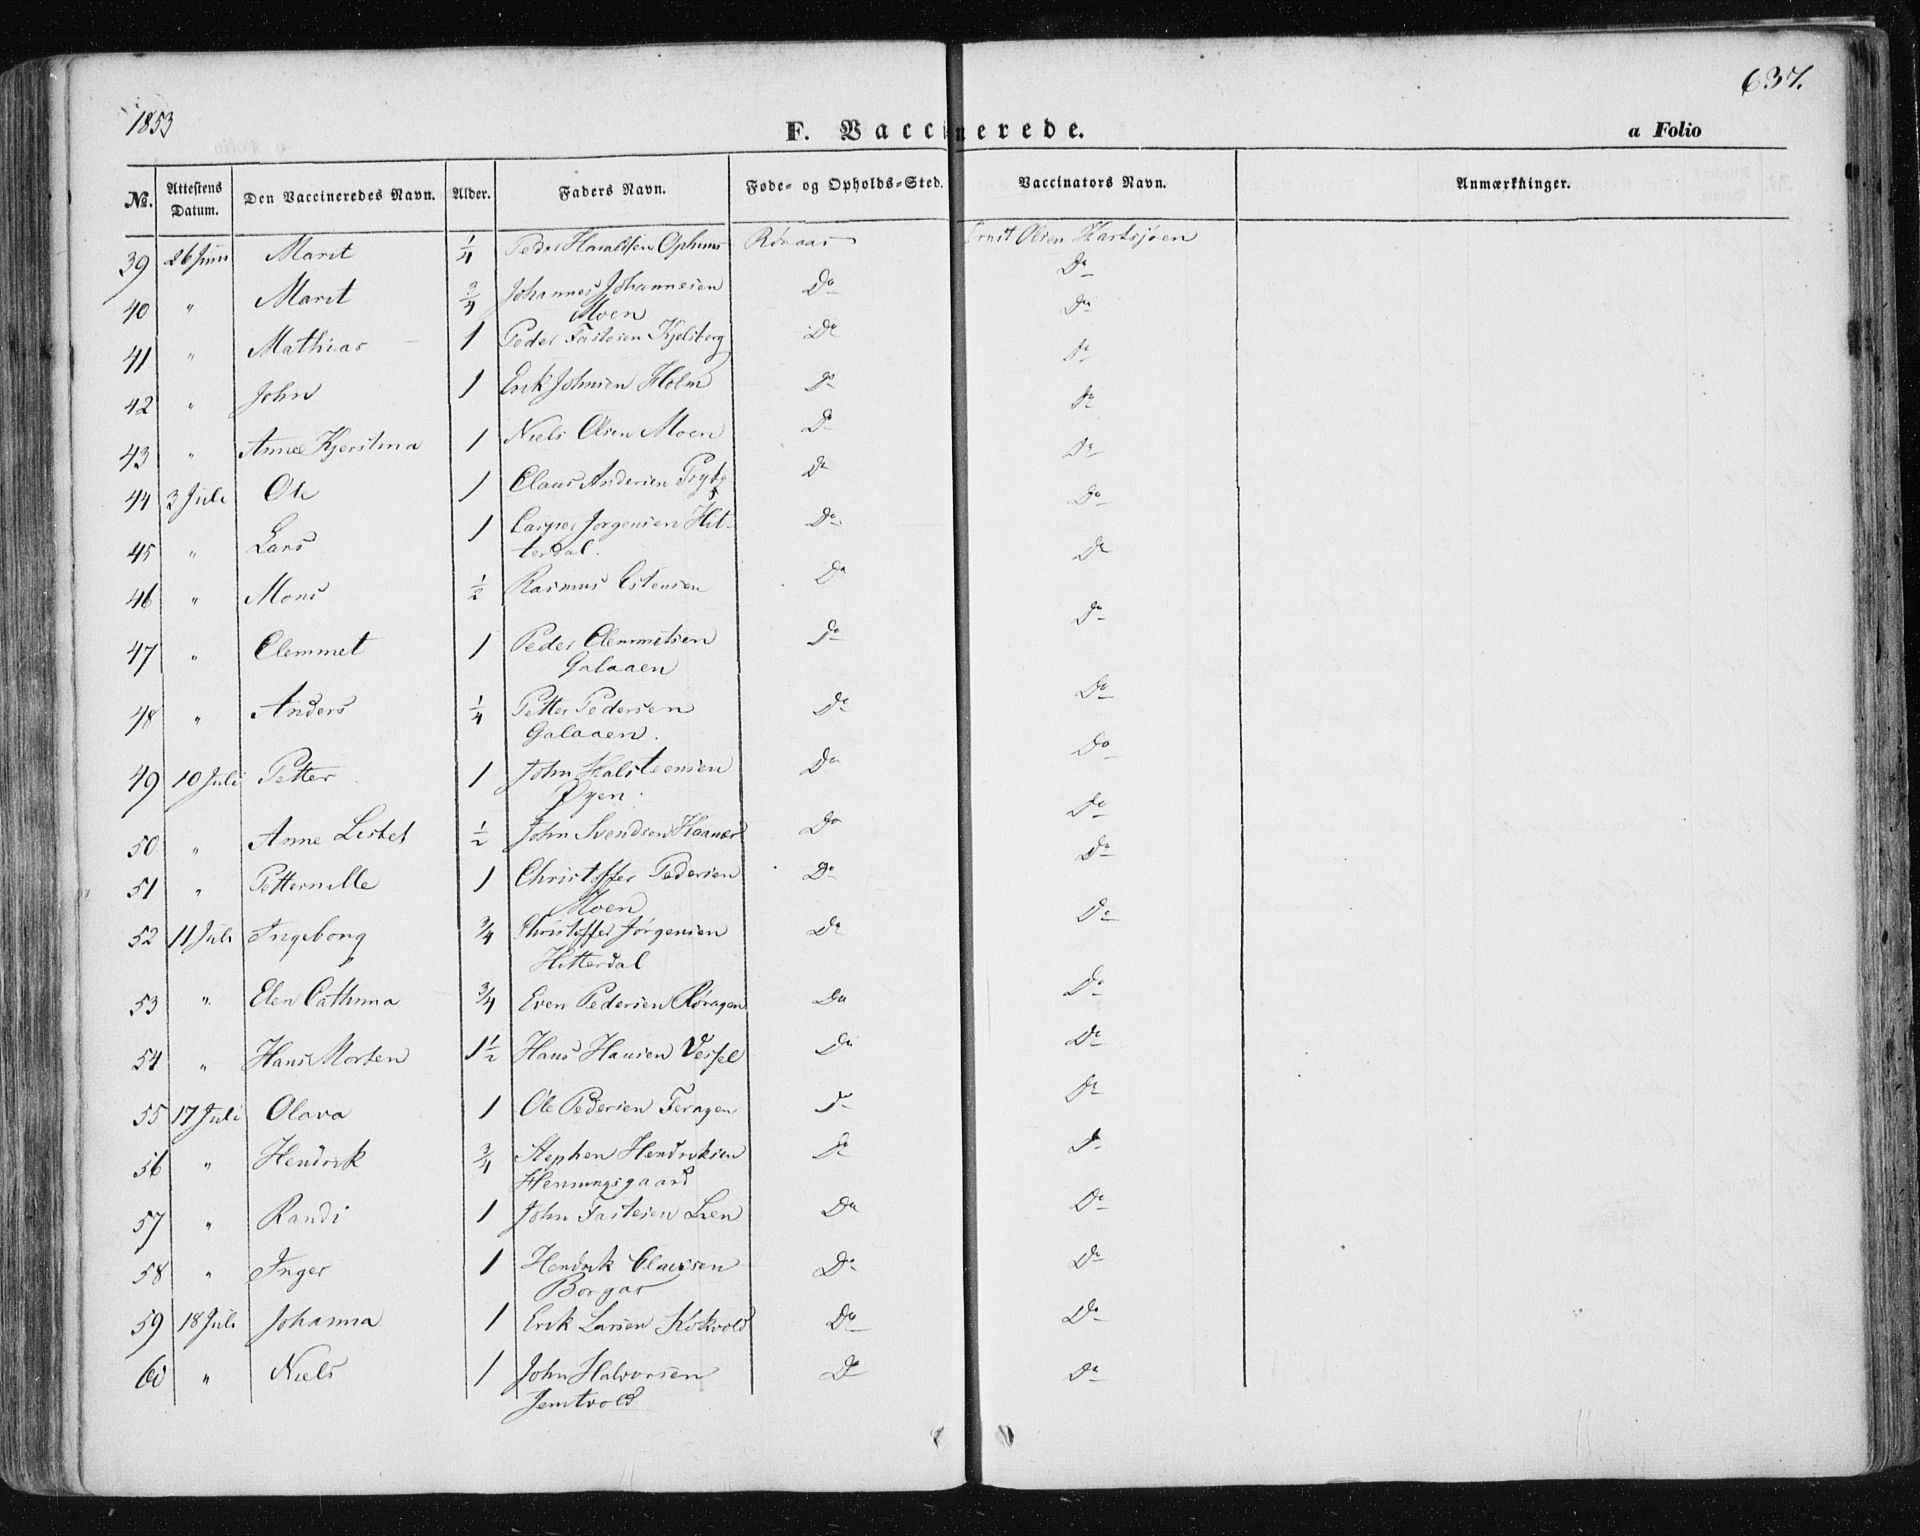 1853
637.
F. Vaccinerede.
a Folio
№. Attestens Datum. Den Vaccineredes Navn. Alder. Faders Navn. Føde- og Opholds-Sted. Vaccinators Navn. Anmærkninger.
39 26 Juni Marit 1/4 Peder Haraldsen Røraas Olsen Hartsjøen
40 " Marit 3/4 Johannes Johannesen Do Do
Moen
41 " Mathias 1 Peder Fastesen Kjelsberg Do Do
42 " John 1 Erik Johnsen Holm Do Do
43 " Anne Kjerstina 1 Niels Olsen Moen Do Do
44 3 Juli Ole 1 Claus Andersen Do Do
45 " Lars 1 Casper Jørgensen Hit- Do Do
terdal.
46 " Mons 1/2 Rasmus Estensen Do Do
47 " Clemmet 1 Peder Clemmetsen Do Do
Galaaen
48 " Anders 1/4 Petter Pedersen Do Do
Galaaen.
49 10 Juli Petter 1 John Halsteensen Do Do
Øyen.
50 " Anne Lisbet 1/2 John Svendsen Do Do
51 " Petternille 1 Christoffer Pedersen Do Do
Moen
52 11 Juli Ingeborg 3/4 Christoffer Jørgensen Do Do
Hitterdal
53 " Elen Cathrina 3/4 Even Pedersen Røragen Do Do
54 " Hans Morten 1 1/2 Hans Hansen Vessel Do Do
55 17 Juli Olava 1 Ole Pedersen Feragen Do Do
56 " Hendrik 3/4 Stephen Hendriksen Do Do
Henningsgaard
57 " Randi 1 John Fastesen Lien Do Do
58 " Inger 1 Hendrik Clausen Do Do
Borgas
59 18 Juli Johanna 1 Erik Larsen Kokvold Do Do
60 " Niels 1 John Halvorsen Do Do
Jemtvold